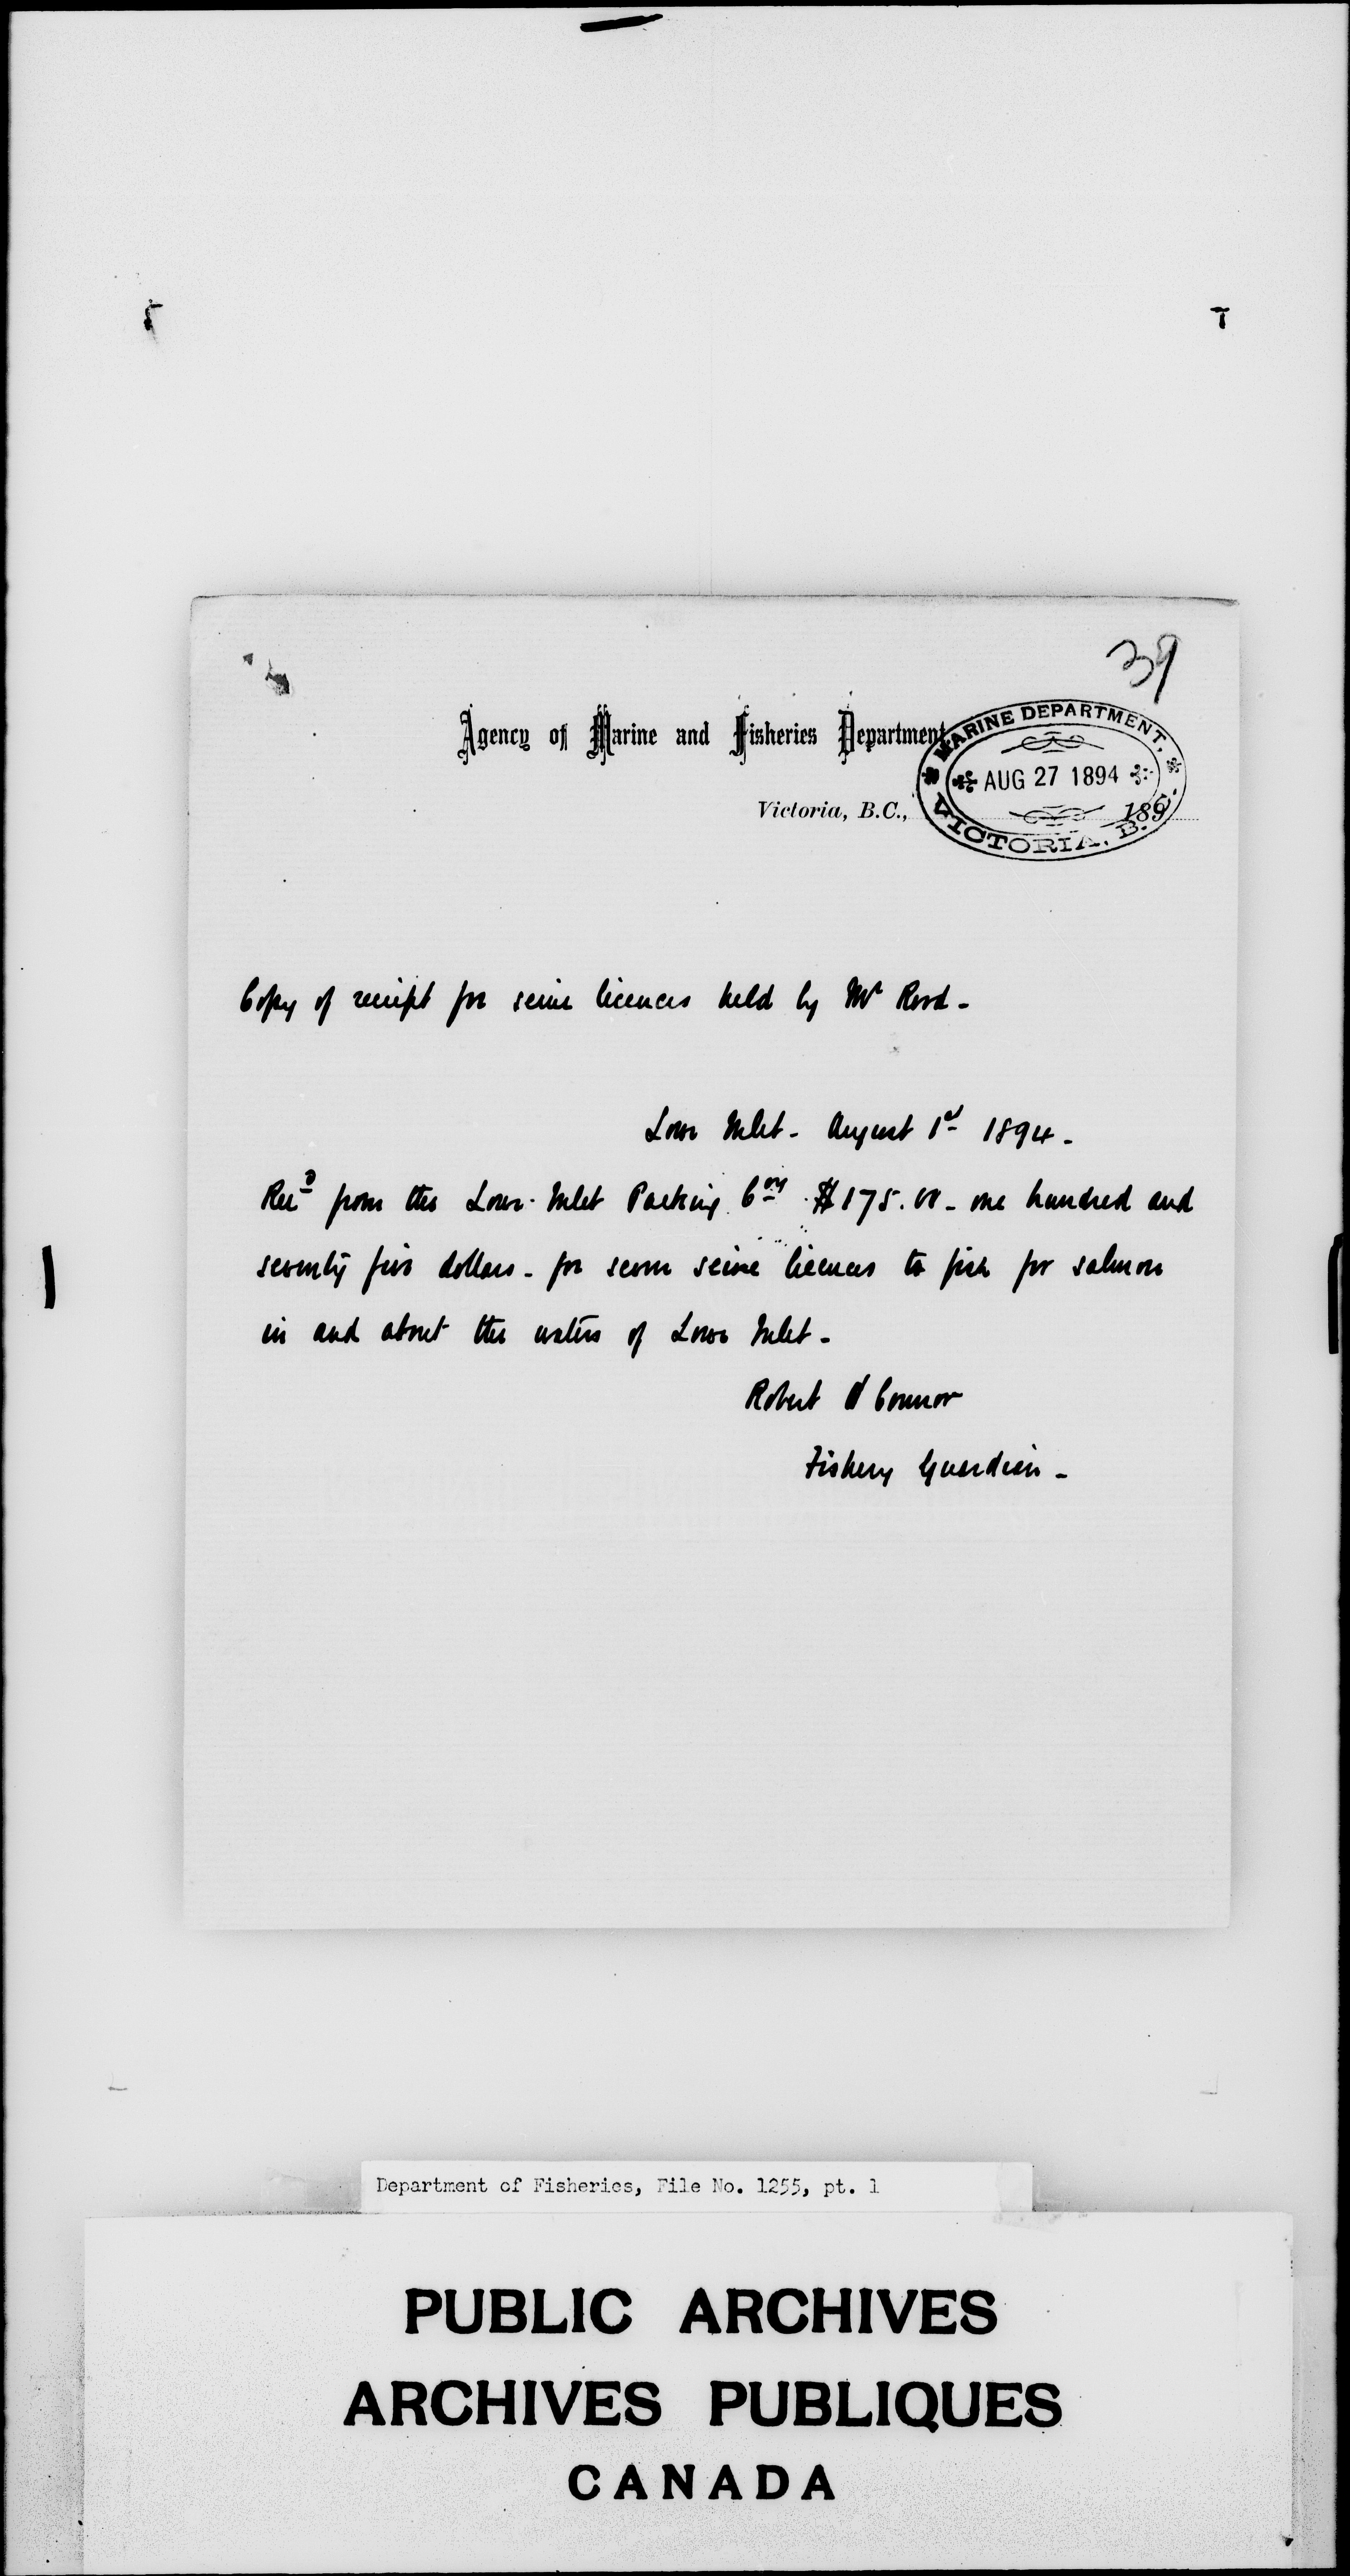 39
Agency of Marine and Fisheries Department
MARINE DEPARTMENT,
AUG 27 1894
VICTORIA, B.C.
Victoria, B.C., 189
Copy of receipt for seine licences held by Mr Rood -
Lowe Inlet - August 1st 1894 -
Recd from the Lowe Inlet Packing Coy $175.00 - one hundred and
seventy five dollars - for seven seine licences to fish for salmon
in and about the waters of Lowe Inlet -
Robert O'Connor
Fishery Guardian -
Department of Fisheries, File No. 1255, pt. 1
PUBLIC ARCHIVES
ARCHIVES PUBLIQUES
CANADA